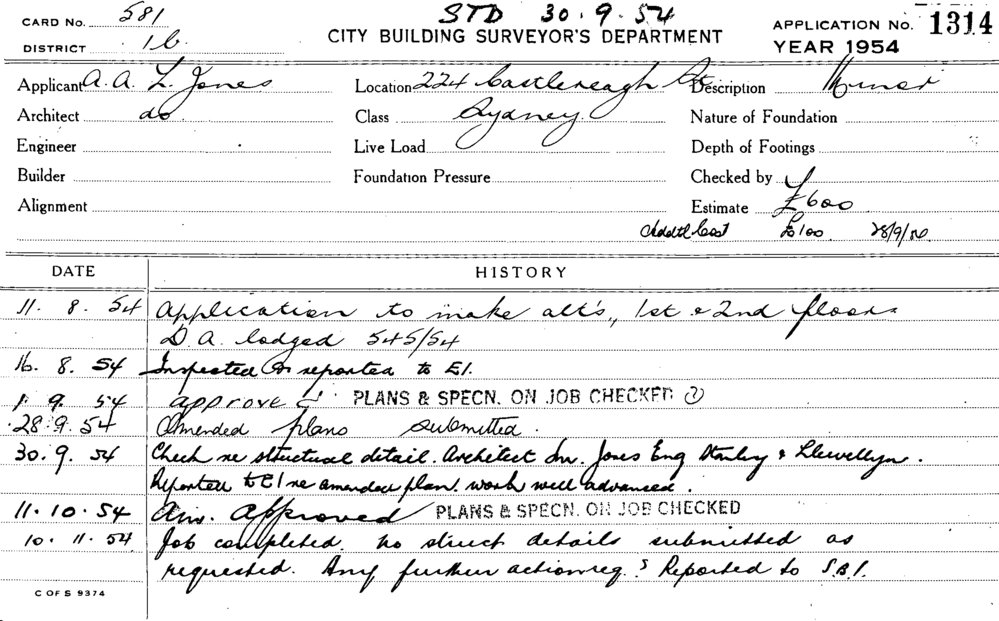 CARD No. 581
STD 30.9.54
APPLICATION No. 1314
DISTRICT 16
CITY BUILDING SURVEYOR'S DEPARTMENT
YEAR 1954
Applicant A. A. L. Jones Location 224 Castlereagh St Description Minor
Architect do Class Sydney Nature of Foundation
Engineer Live Load Depth of Footings
Builder Foundation Pressure Checked by
Alignment Estimate £600
Addtl Cost £100 28/9/54
DATE HISTORY
11. 8. 54 Application to make alt's., 1st & 2nd floors
D.A. lodged 545/54
16. 8. 54 Inspected & reported to E1.
1. 9. 54 approved PLANS & SPECN. ON JOB CHECKED
28.9.54 Amended plans submitted.
30.9.54 Check re structural detail. Architect Mr. Jones Eng Stanley & Llewellyn.
Reported to E1 re amended plan. work well advanced.
11.10.54 Am. Approved PLANS & SPECN. ON JOB CHECKED
10.11.54 Job completed. No struct details submitted as
requested. Any further action req.? Reported to S.B.I.
C OF S 9374